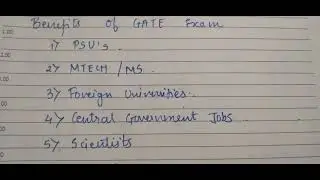 Benefits of GATE Exam
1) PSU's.
2) MTECH / MS
3) Foreign Universities.
4) Central Government Jobs.
5) Scientists